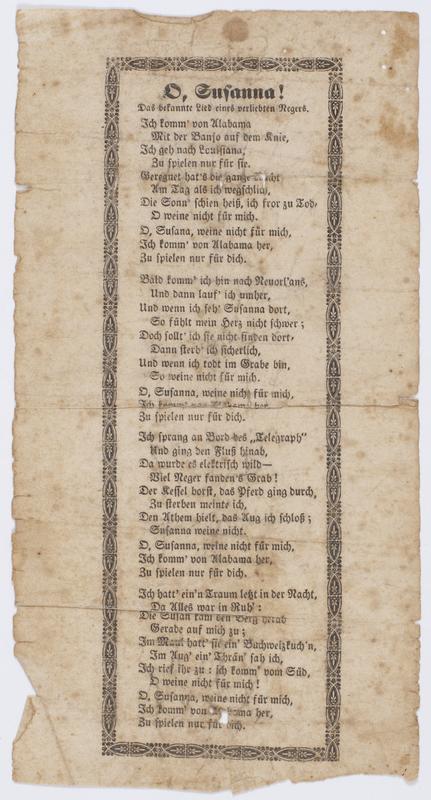 O, Susanna!
Das bekannte Lied eines verliebten Negers.
Ich komm' von Alabama
Mit der Banjo auf dem Knie,
Ich geh nach Louisiana,
Zu spielen nur für sie.
Geregnet hat's die ganze Nacht
Am Tag als ich wegschlich,
Die Sonn' schien heiß, ich fror zu Tod,
O weine nicht für mich.
O, Susana, weine nicht für mich,
Ich komm' von Alabama her,
Zu spielen nur für dich.
Bald komm' ich hin nach Neuorl'ans,
Und dann lauf' ich umher,
Und wenn ich seh' Susanna dort,
So fühlt mein Herz nicht schwer;
Doch sollt' ich sie nicht finden dort,
Dann sterb' ich sicherlich,
Und wenn ich todt im Grabe bin,
So weine nicht für mich.
O, Susanna, weine nicht für mich,
Ich komm' von Alabama her,
Zu spielen nur für dich.
Ich sprang an Bord des „Telegraph"
Und ging den Fluß hinab,
Da wurde es elektrisch wild—
Viel Neger fanden's Grab!
Der Kessel borst, das Pferd ging durch,
Zu sterben meinte ich,
Den Athem hielt, das Aug ich schloß;
Susanna weine nicht.
O, Susanna, weine nicht für mich,
Ich komm' von Alabama her,
Zu spielen nur für dich.
Ich hatt' ein'n Traum letzt in der Nacht,
Da Alles war in Ruh':
Die Susan kam den Berg herab
Gerade auf mich zu;
Im Maul hatt' sie ein' Buchweizkuch'n,
Im Aug' ein' Thrän' sah ich,
Ich rief ihr zu: ich komm' vom Süd,
O weine nicht für mich!
O, Susanna, weine nicht für mich,
Ich komm' von Alabama her,
Zu spielen nur für dich.